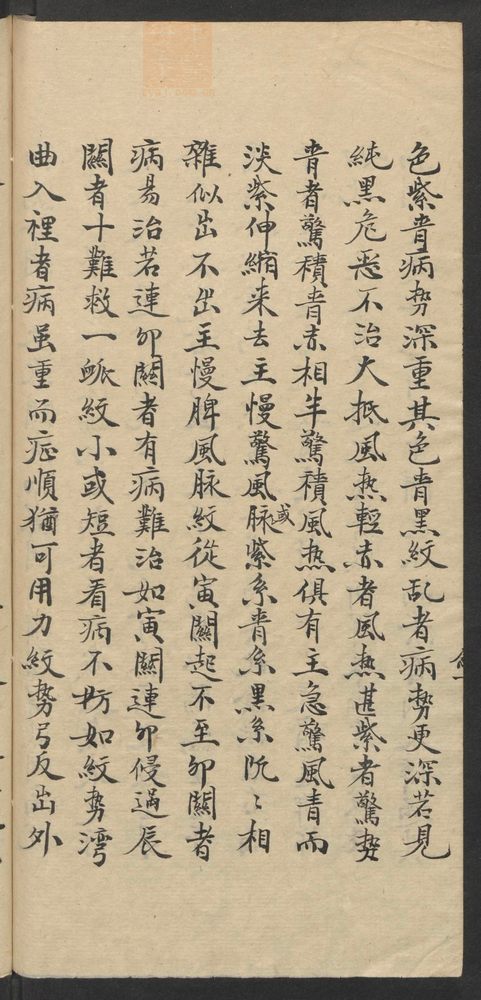 色紫青病势深重其色青黑紋乱者病勢更深若見
純黒危恶不治大抵風热輕赤者風热甚紫者驚势
青者驚積青赤相半驚積風热俱有主急驚風青而
淡紫伸縮来去主慢驚風或脉紫糸青糸黒糸阮〻相
雜似出不出主慢脾風脉紋從寅關起不至卯關者
病易治若連卯關者有病難治如寅関連卯侵過辰
關者十難救一脈紋小或短者看病不妨如紋势湾
曲入裡者病虽重而症順猶可用力紋勢弓反出外